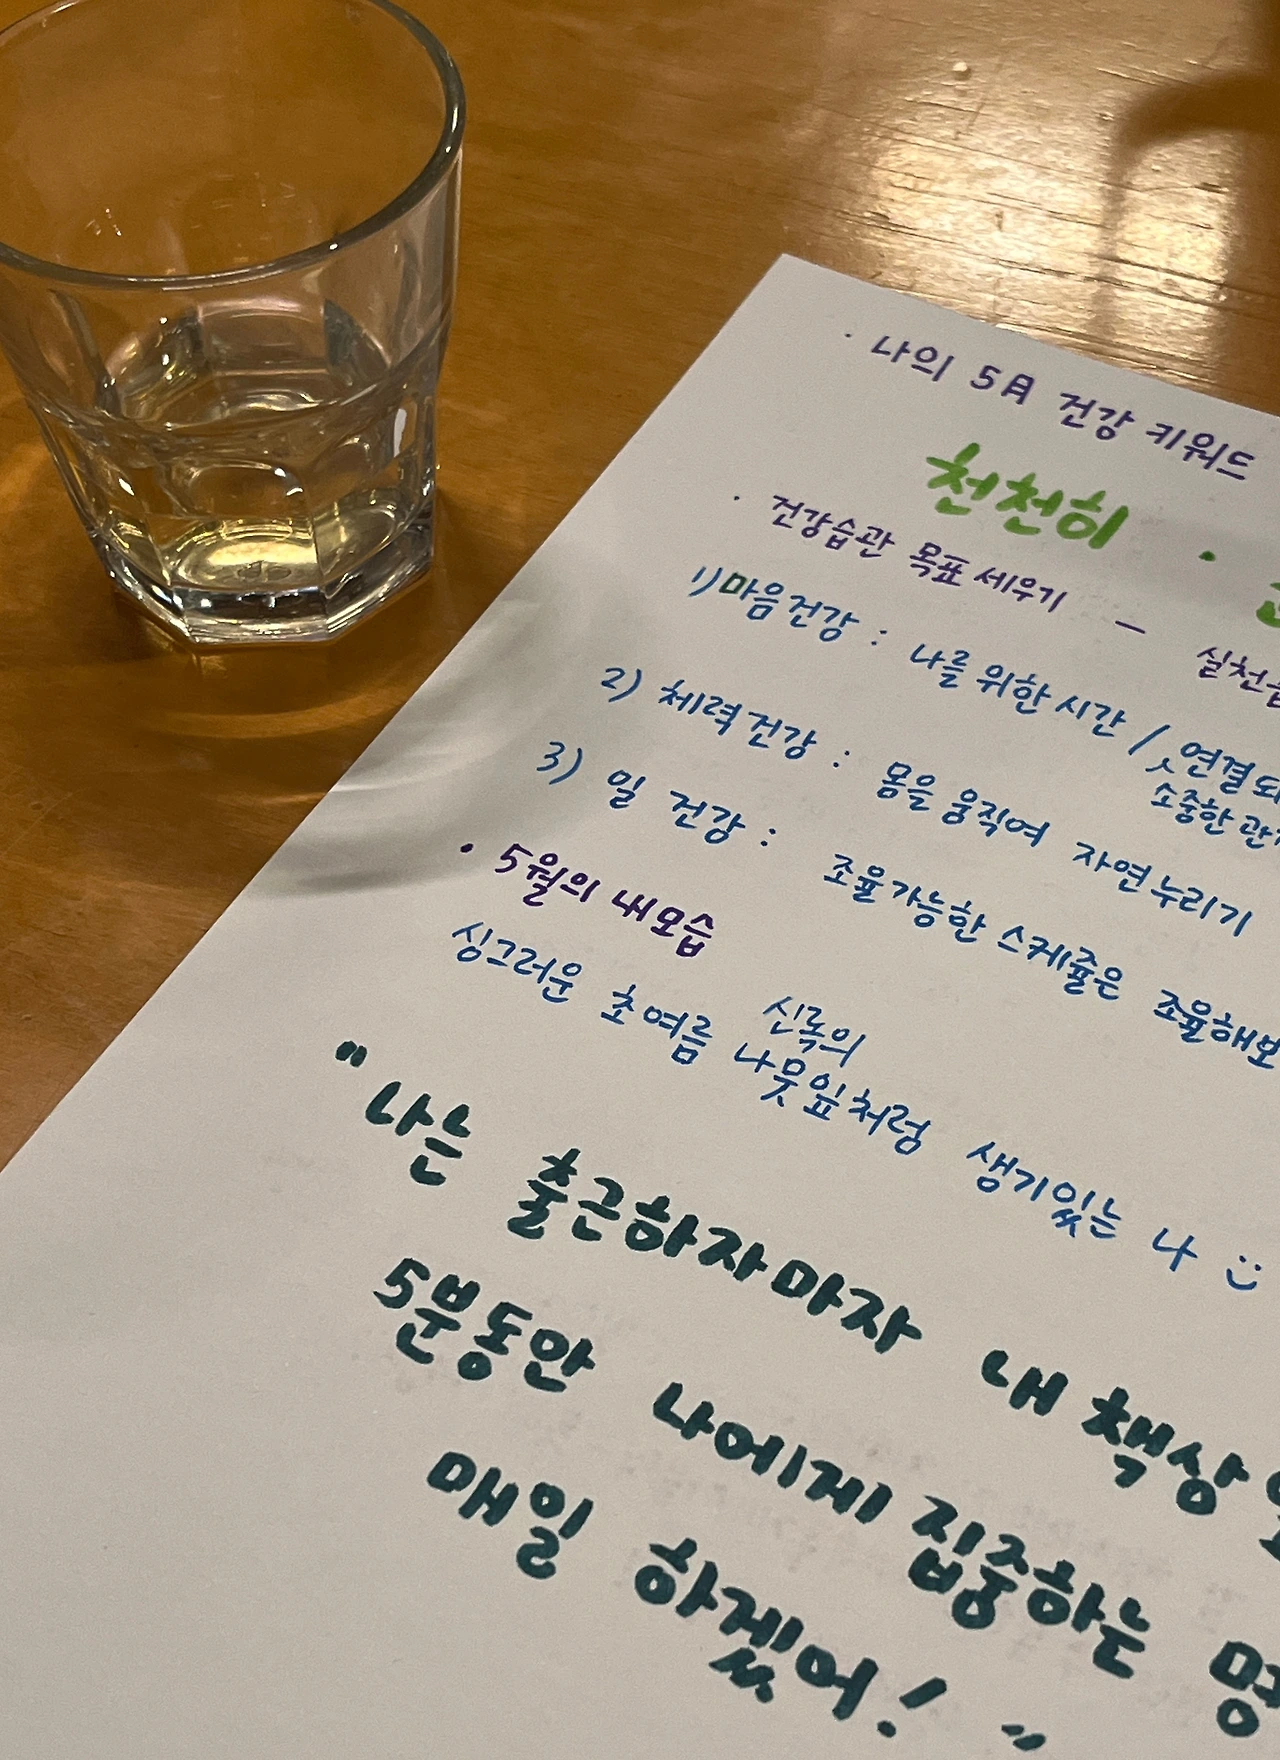 · 나의 5月 건강 키워드
천천히 ·
· 건강습관 목표 세우기 —
1) 마음건강 : 나를 위한 시간 / 연결되
소중한 관
2) 체력건강 : 몸을 움직여 자연누리기
3) 일 건강 : 조율가능한 스케쥴은 조율해보
· 5월의 내모습
신록의
싱그러운 초여름 나뭇잎처럼 생기있는 나 :)
"나는 출근하자마자 내 책상
5분동안 나에게 집중하는
매일 하겠어! "